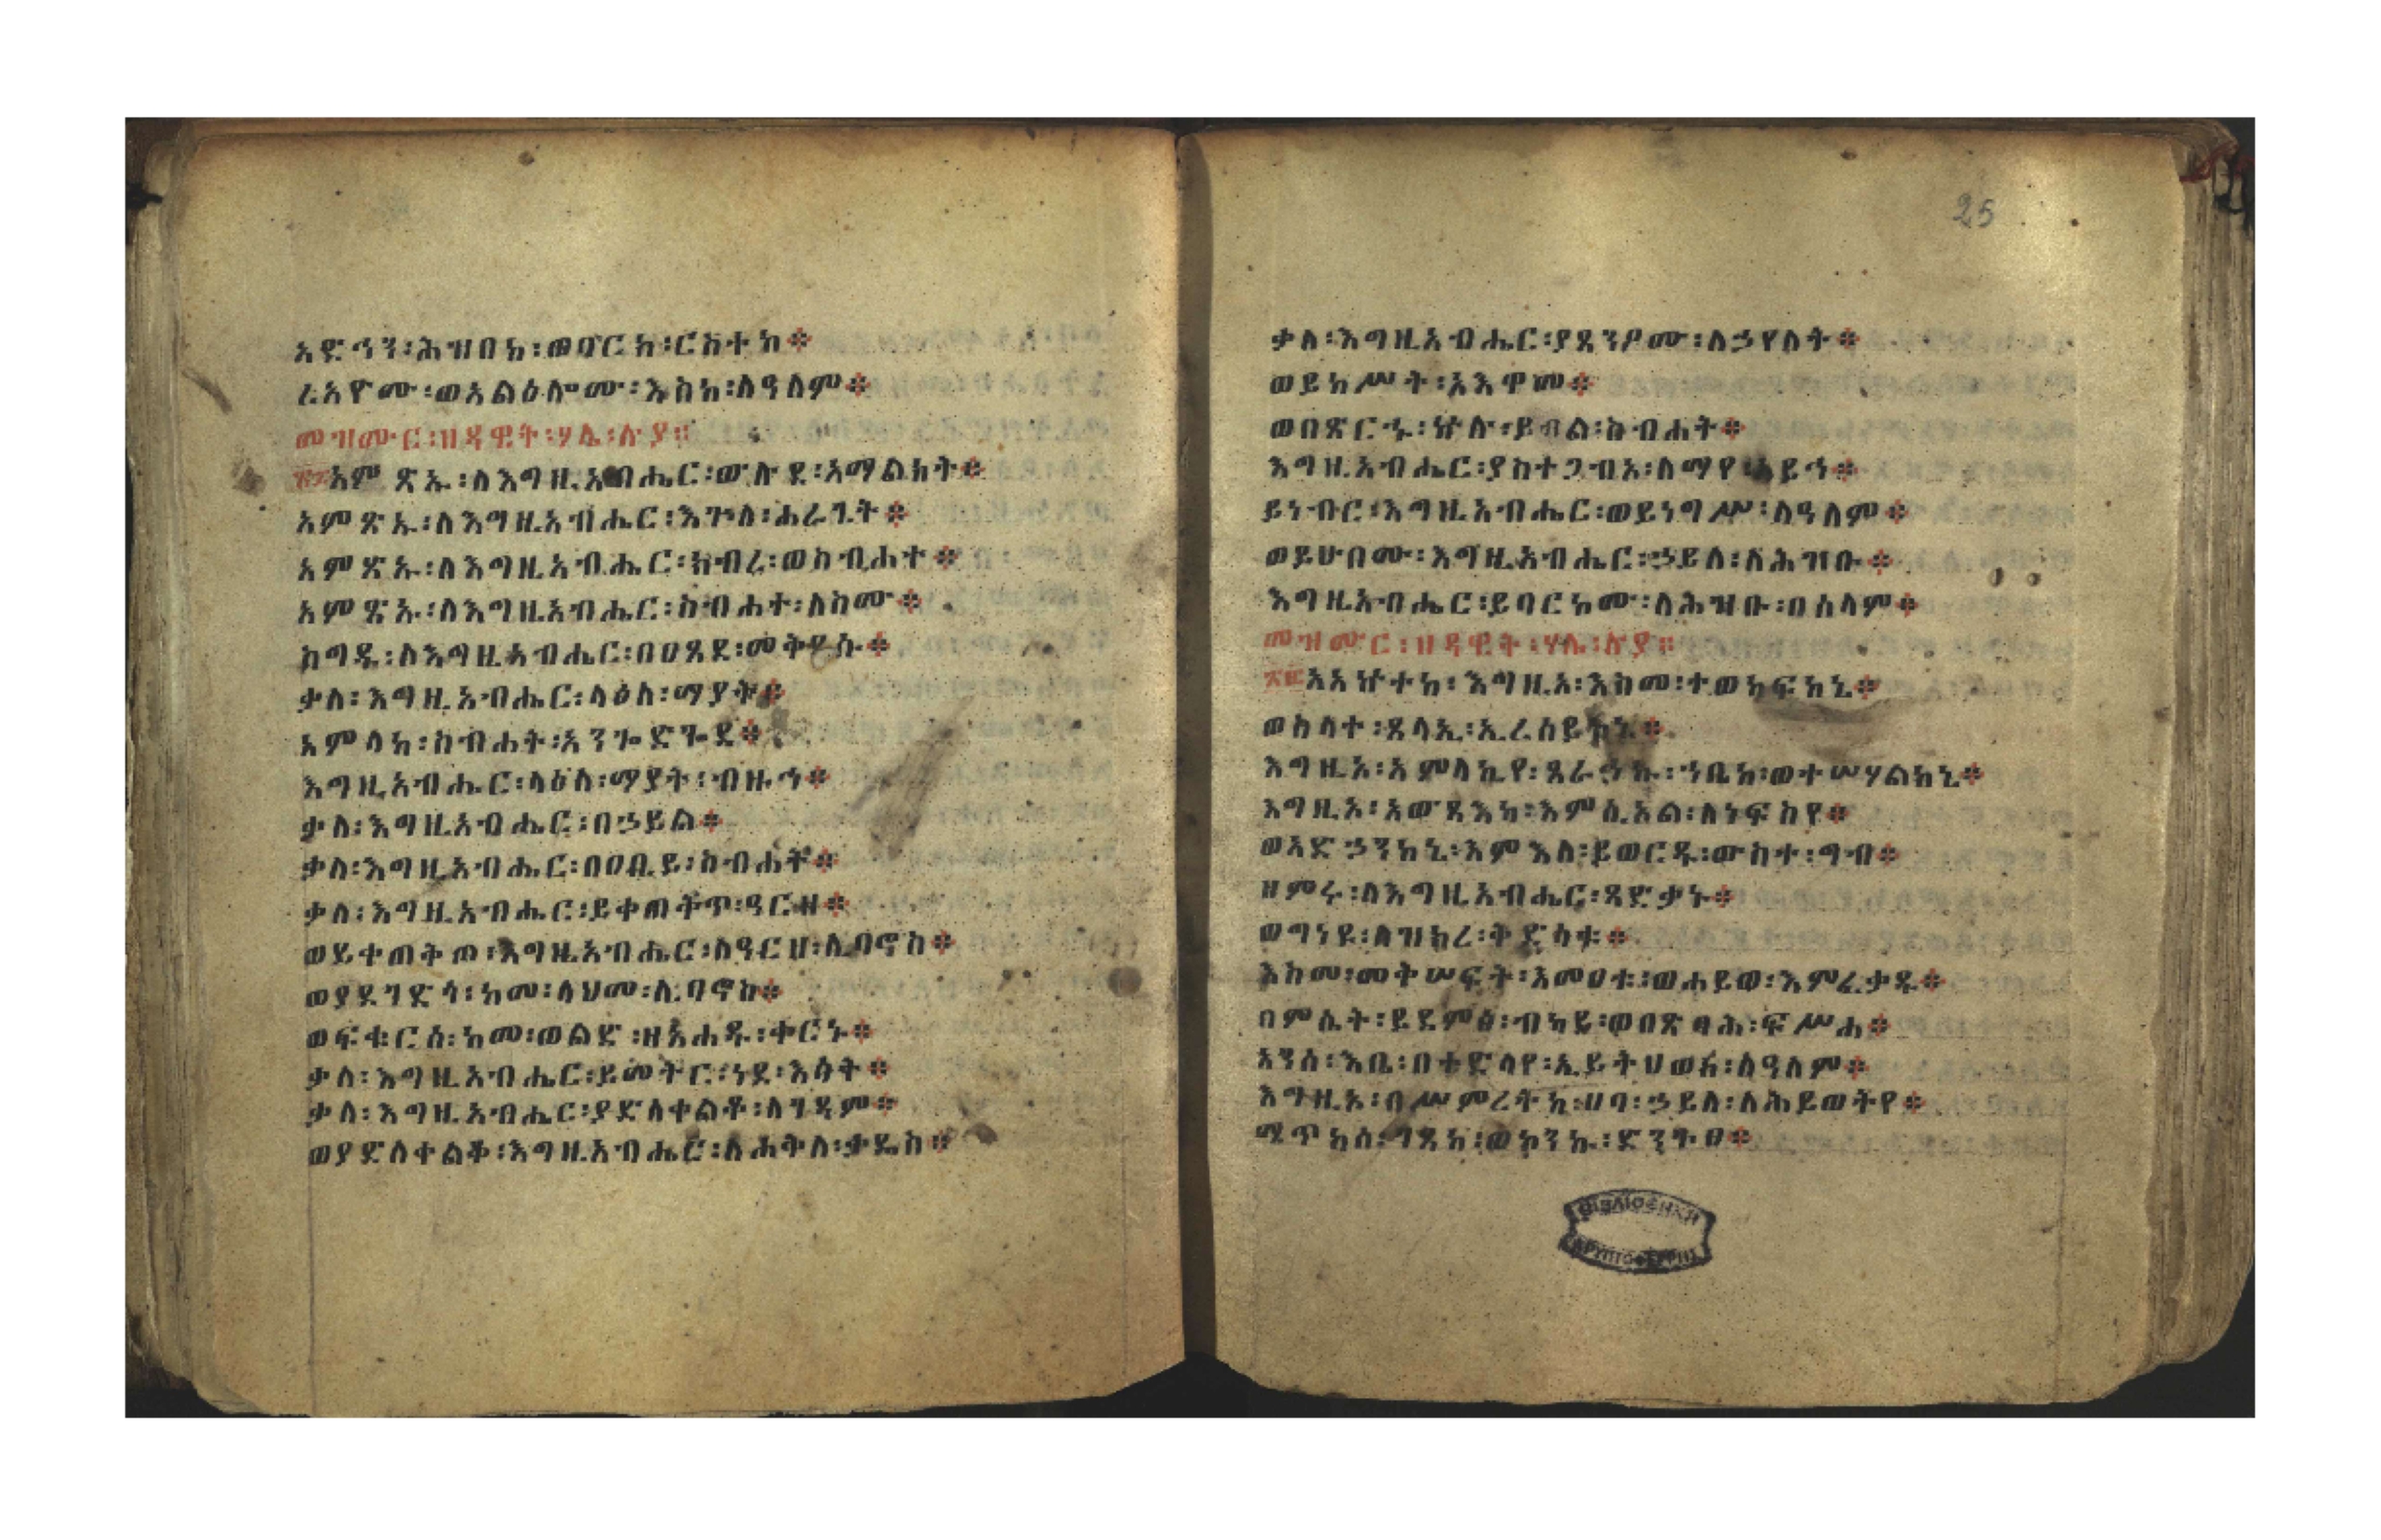 አድኅን፡ሕዝበከ፡ወባርክ፡ርስተከ፨
ረአዮሙ፡ወአልዕሎሙ፡እስከ፡ለዓለም፨
መዝሙር፡ዘዳዊት፡ሃሌ፡ሉያ።
፳፰አምጽኡ፡ለእግዚአብሔር፡ውሉደ፡አማልክት፨
አምጽኡ፡ለእግዚአብሔር፡እጕለ፡ሐራጊት፨
አምጽኡ፡ለእግዚአብሔር፡ክብረ፡ወስብሐተ፨
አምጽኡ፡ለእግዚአብሔር፡ስብሐተ፡ለስሙ፨
ስግዱ፡ለእግዚአብሔር፡በዐጸደ፡መቅደሱ፨
ቃለ፡እግዚአብሔር፡ላዕለ፡ማያት፨
አምላከ፡ስብሐት፡አንጐድጐደ፨
እግዚአብሔር፡ላዕለ፡ማያት፡ብዙኅ፨
ቃለ፡እግዚአብሔር፡በኃይል፨
ቃለ፡እግዚአብሔር፡በዐቢይ፡ስብሐት፨
ቃለ፡እግዚአብሔር፡ይቀጠቅጥ፡ዓርዘ፨
ወይቀጠቅጦ፡እግዚአብሔር፡ለዓርዘ፡ሊባኖስ፨
ወያደገድጎ፡ከመ፡ላህመ፡ሊባኖስ፨
ወፍቁርሰ፡ከመ፡ወልድ፡ዘአሐዱ፡ቀርኑ፨
ቃለ፡እግዚአብሔር፡ይመትር፡ነደ፡እሳት፨
ቃለ፡እግዚአብሔር፡ያድለቀልቆ፡ለገዳም፨
ወያድለቀልቆ፡እግዚአብሔር፡ለሐቅለ፡ቃዴስ፨
25
ቃለ፡እግዚአብሔር፡ያጸንዖሙ፡ለኃየላት፨
ወይከሥት፡አእዋመ፨
ወበጽርኁ፡ኵሉ፡ይብል፡ስብሐት፨
እግዚአብሔር፡ያስተጋብአ፡ለማየ፡አይኅ፨
ይነብር፡እግዚአብሔር፡ወይነግሥ፡ለዓለም፨
ወይሁቦሙ፡እግዚአብሔር፡ኃይለ፡ለሕዝቡ፨
እግዚአብሔር፡ይባርኮሙ፡ለሕዝቡ፡በሰላም፨
መዝሙር፡ዘዳዊት፡ሃሌ፡ሉያ።
፳፱አአኵተከ፡እግዚአ፡እስመ፡ተወከፍከኒ፨
ወስላተ፡ጸላኢ፡ኢረሰይከኒ፨
እግዚአ፡አምላኪየ፡ጸራኅኩ፡ኀቤከ፡ወተሣሃልከኒ፨
እግዚአ፡አውጻእካ፡እምሲኦል፡ለነፍስየ፨
ወአድኃንከኒ፡እምእለ፡ይወርዱ፡ውስተ፡ግብ፨
ዘምሩ፡ለእግዚአብሔር፡ጻድቃኑ፨
ወግነዩ፡ለዝክረ፡ቅድሳቱ፨
እስመ፡መቅሠፍት፡እመዐቱ፡ወሐይው፡እምፈቃዱ፨
በምሴት፡ይደምፅ፡ብካይ፡ወበጽባሕ፡ፍሥሐ፨
አንሰ፡እቤ፡በተድላየ፡ኢይትሀወክ፡ለዓለም፨
እግዚአ፡በሥምረትከ፡ሀባ፡ኃይለ፡ለሕይወትየ፨
ሜጥከሰ፡ገጸከ፡ወኮንኩ፡ድንጉፀ፨
ΒΙΒΛΙΟΘΗΚΗ